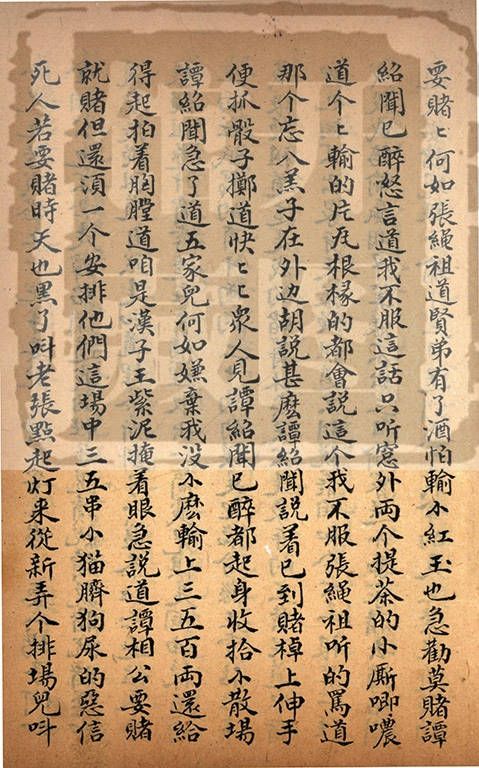 耍賭〻何如張繩祖道賢弟有了酒怕輸小紅玉也急勸莫賭譚
紹聞已醉怒言道我不服這話只听窓外両个提茶的小厮唧噥
道个〻輸的片瓦根椽的都會説這个我不服張繩祖听的罵道
那个忘八羔子在外边胡説甚麽譚紹聞説着已到賭棹上伸手
便抓骰子擲道快〻〻衆人見譚紹聞已醉都起身收拾小散塲
譚紹聞急了道五家兒何如嫌棄我没小麽輸上三五百両還給
得起拍着胸膛道咱是漢子王紫泥掩着眼急説道譚相公要賭
就賭但還湏一个安排他們這塲中三五串小猫臍狗尿的惡信
死人若要賭時天也黒了呌老張點起灯来從新弄个排塲兒呌